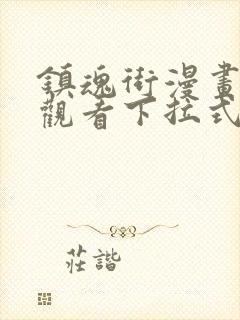 鎮魂街漫畫
觀看下拉式
莊諧